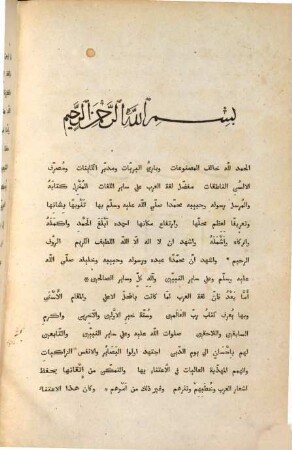 بسم الله الرحمن الرحيم
الحمد لله خالف المصنوعات وبارئ البريات ومدبر الكاينات ومصرف
الالسن الناطقات مفضل لغة العرب على ساير اللغات المنزل كتابه
والمرسل رسوله وحبيبه محمدا صلى الله عليه وسلم بها تنويها بشانها
وتعريفا لعظم محلها وارتفاع مكانها احمده ابلغ الحمد واكمله
وازكاه واشمله واشهد ان لا اله الا الله اللطيف الكريم الروف
الرحيم * واشهد ان محمدا عبده ورسوله وحبيبه وخليله صلى الله
عليه وسلم وعلى ساير النبيين وآله كل وساير الصالحين *
أما بعد فان لغة العرب لما كانت بالمحل الاعلى والمقام الأسنى
وبها يعرف كتاب رب العالمين وسنة خير الاولين والآخرين واكرم
السابقين واللاحقين صلوات الله عليه وعلى ساير النبيين والتابعين
لهم باحسان الى يوم الدين اجتهد اولوا البصاير والانفس الزاكيات
والهمم المهذبة العاليات في الاعتناء بها والتمكن من اتقانها بحفظ
اشعار العرب وخطبهم ونثرهم وغير ذلك من امورهم * وكان هذا الاعتناء